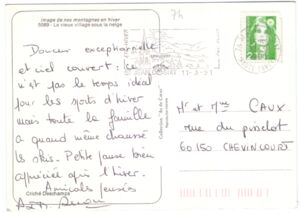 Image de nos montagnes en hiver
5089 - Le vieux village sous la neige
74
Douceur exceptionnelle
et ciel couvert : ce
n'est pas le temps idéal
pour les sports d'hiver
mais toute la famille
a quand même chaussé
les skis. Petite pause bien
appréciée qui l'hiver.
Amicales pensées
Cliché Deschamps
Mr et Mme CAUX
rue du
60150 CHEVINCOURT